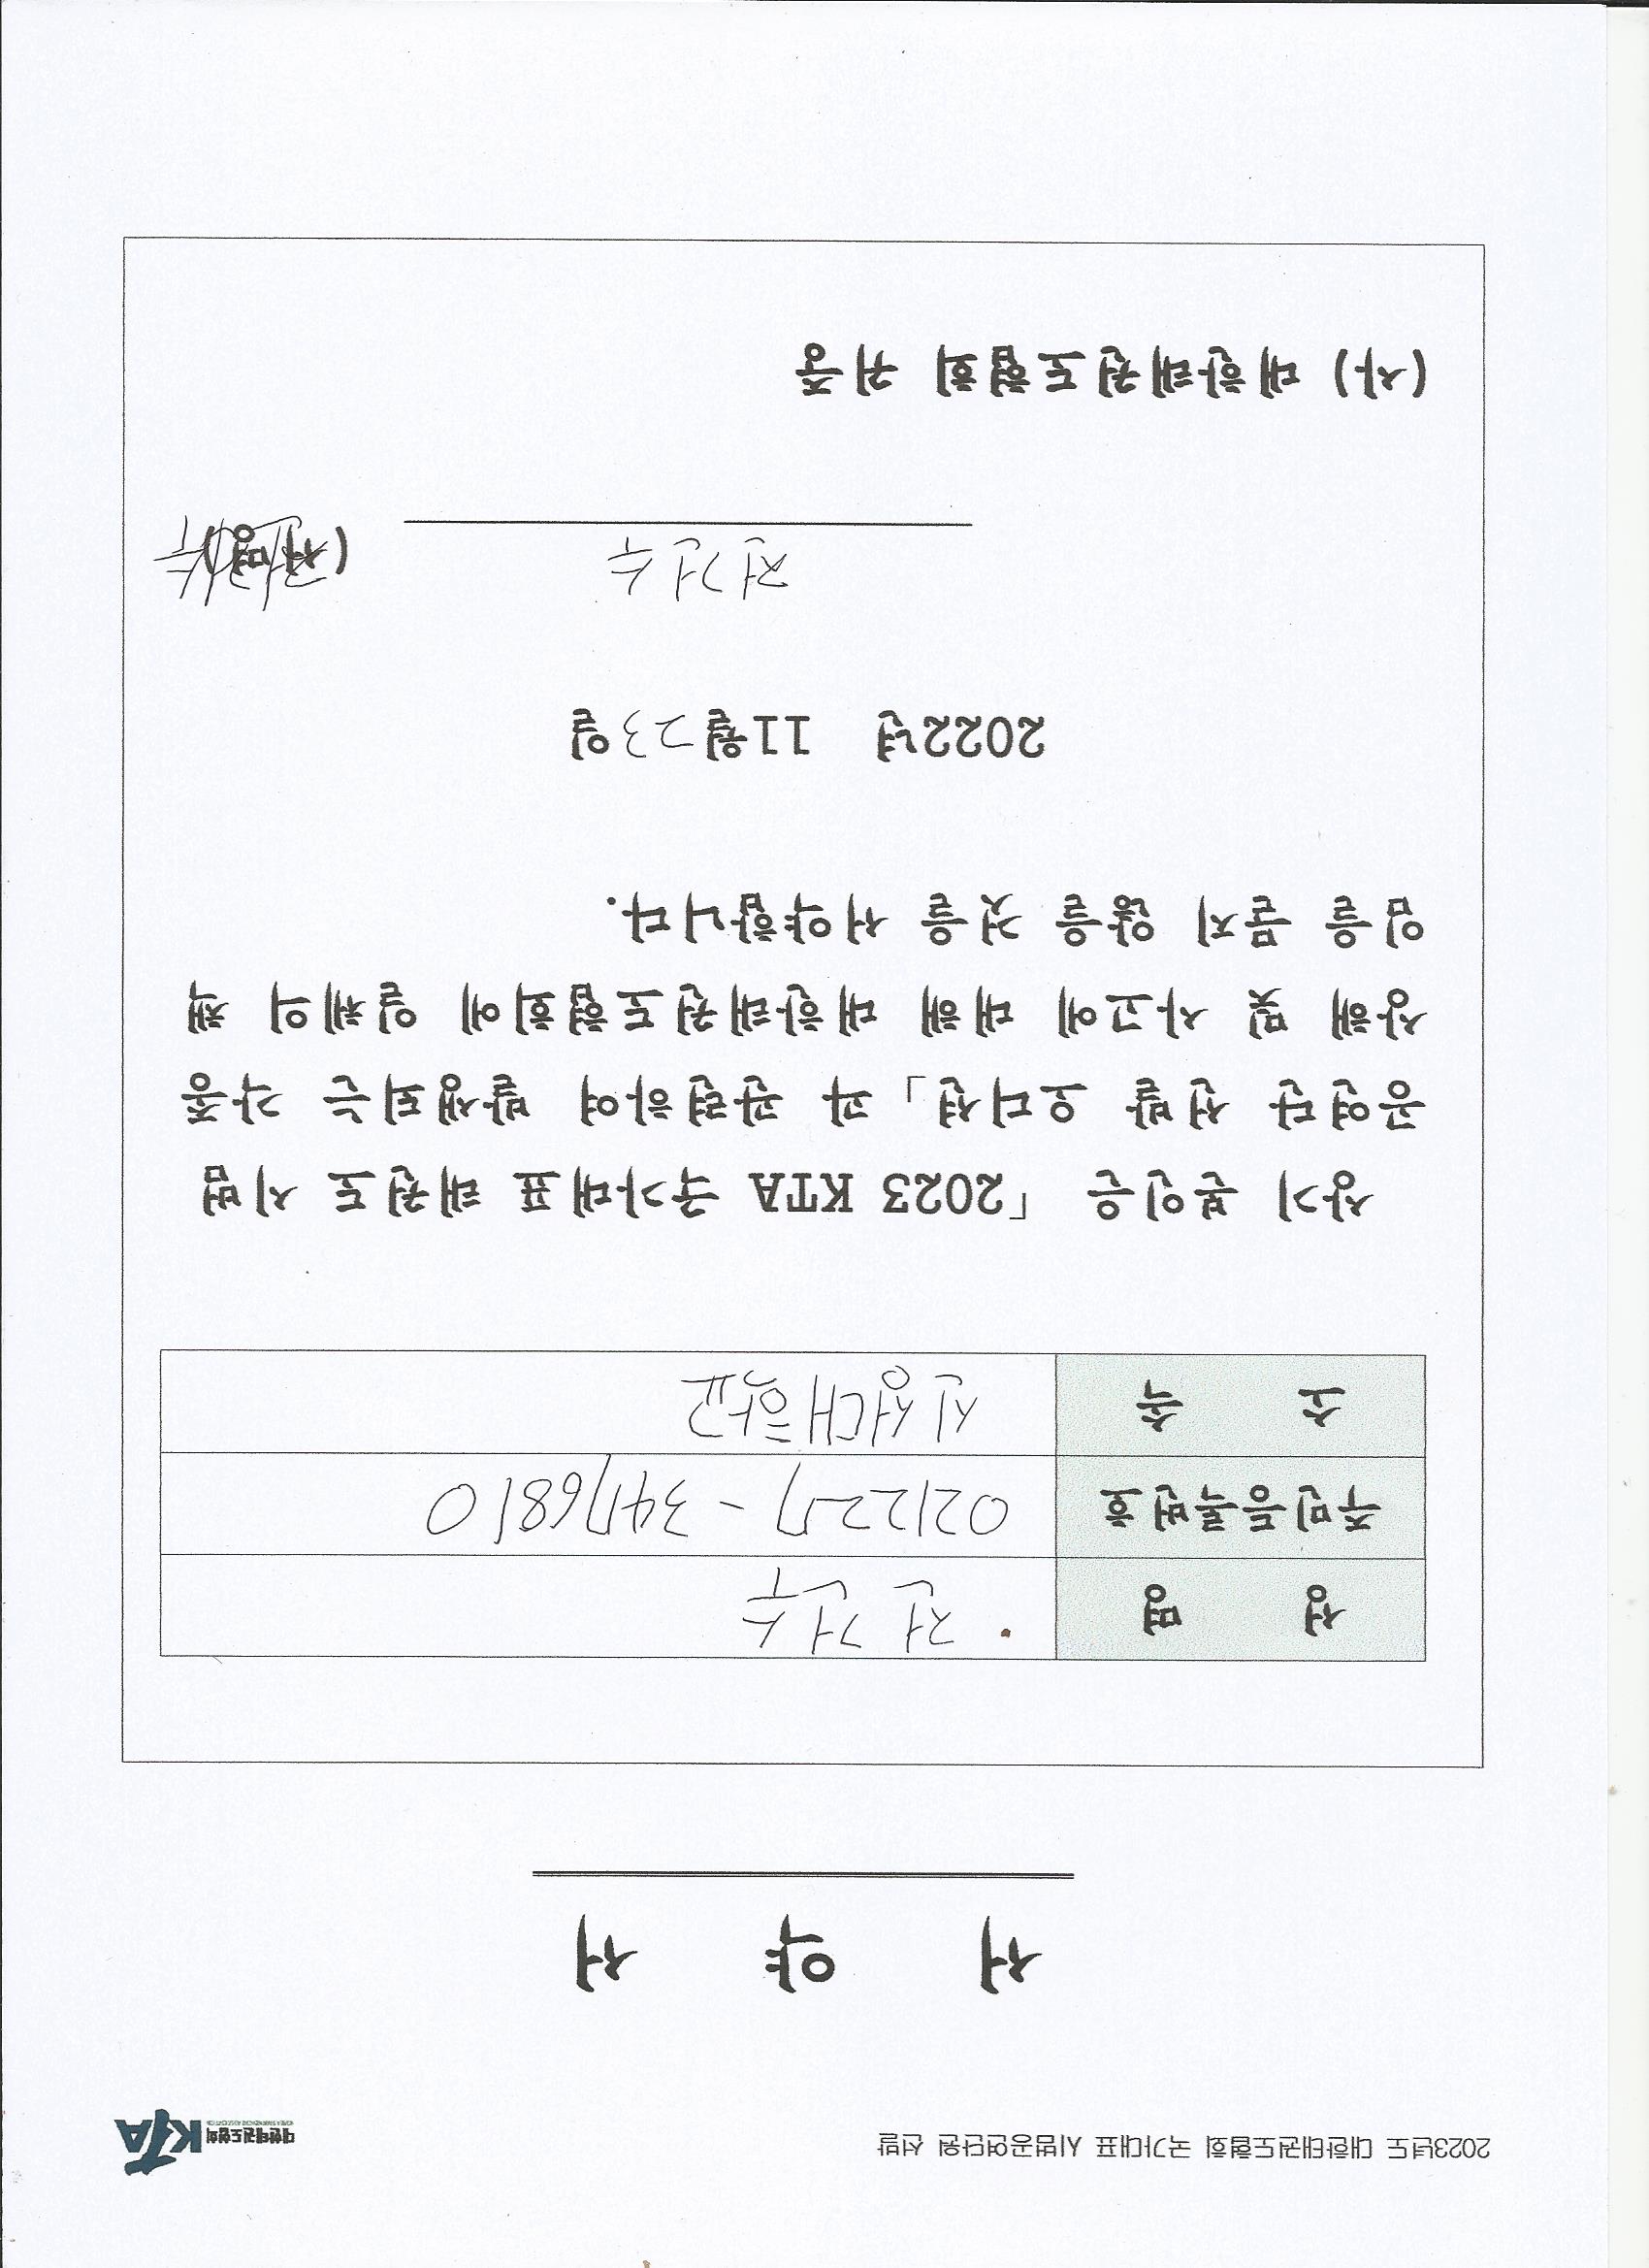 2023년도 대한태권도협회 국가대표 시범공연단원 선발
대한태권도협회
KOREA TAEKWONDO ASSOCIATION
KTA
서 약 서
성 명 전건수
주민등록번호 021227 - 3476810
소 속 신성대학교
상기 본인은 「2023 KTA 국가대표 태권도 시범
공연단 선발 오디션」과 관련하여 발생되는 각종
상해 및 사고에 대해 대한태권도협회에 일체의 책
임을 묻지 않을 것을 서약합니다.
2022년 11월 23일
전건수 (서명) 전건수
(사) 대한태권도협회 귀중